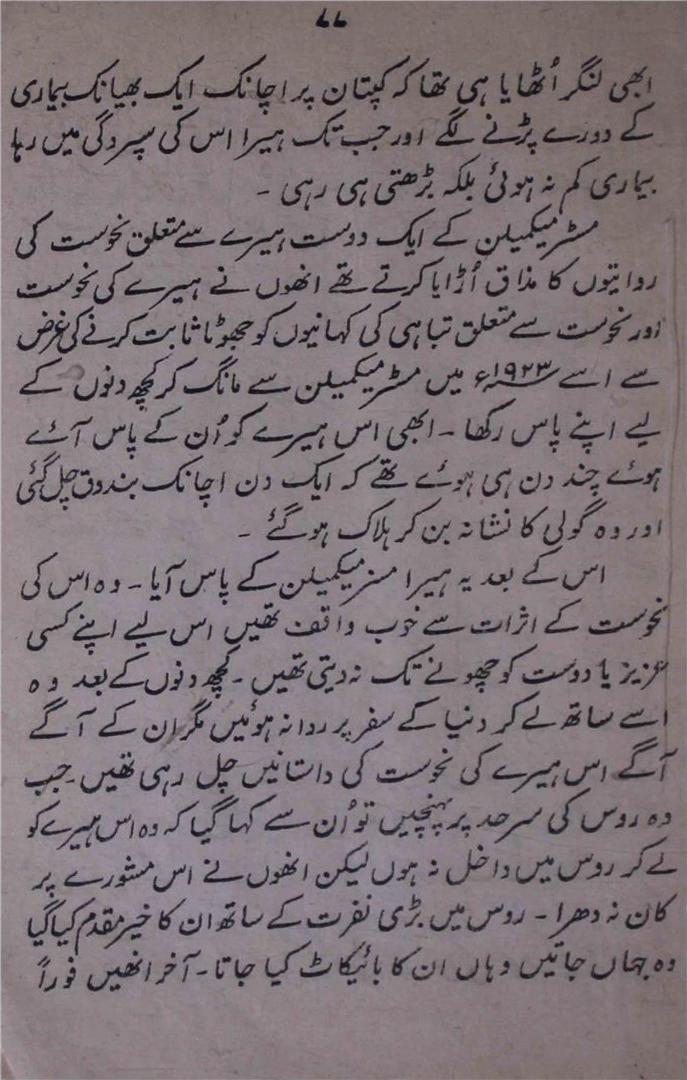 ۷۷
ابھی لنگر اُٹھایا ہی تھا کہ کپتان پر اچانک ایک بھیانک بیماری
کے دورے پڑنے لگے اور جب تک ہیرا اس کی سپردگی میں رہا
بیماری کم نہ ہوئی بلکہ بڑھتی ہی رہی ۔
مسٹر میکمیلن کے ایک دوست ہیرے سے متعلق نحوست کی
روایتوں کا مذاق اُڑایا کرتے تھے انھوں نے ہیرے کی نحوست
اور نحوست سے متعلق تباہی کی کہانیوں کو جھوٹا ثابت کرنے کی غرض
سے اسے ۱۹۲۳ء میں مسٹر میکمیلن سے مانگ کر کچھ دنوں کے
لیے اپنے پاس رکھا ۔ ابھی اس ہیرے کو اُن کے پاس آئے
ہوئے چند دن ہی ہوئے تھے کہ ایک دن اچانک بندوق چل گئی
اور وہ گولی کا نشانہ بن کر ہلاک ہو گئے ۔
اس کے بعد یہ ہیرا مسز میکمیلن کے پاس آیا ۔ وہ اس کی
نحوست کے اثرات سے خوب واقف تھیں اس لیے اپنے کسی
عزیز یا دوست کو چھونے تک نہ دیتی تھیں ۔ کچھ دنوں کے بعد وہ
اسے ساتھ لے کر دنیا کے سفر پر روانہ ہوئیں مگر ان کے آگے
آگے اس ہیرے کی نحوست کی داستانیں چل رہی تھیں ۔ جب
وہ روس کی سرحد پر پہنچیں تو اُن سے کہا گیا کہ وہ اس ہیرے کو
لے کر روس میں داخل نہ ہوں لیکن انھوں نے اس مشورے پر
کان نہ دھرا ۔ روس میں بڑی نفرت کے ساتھ ان کا خیر مقدم کیا گیا
وہ جہاں جاتیں وہاں ان کا بائیکاٹ کیا جاتا ۔ آخر انھیں فوراً